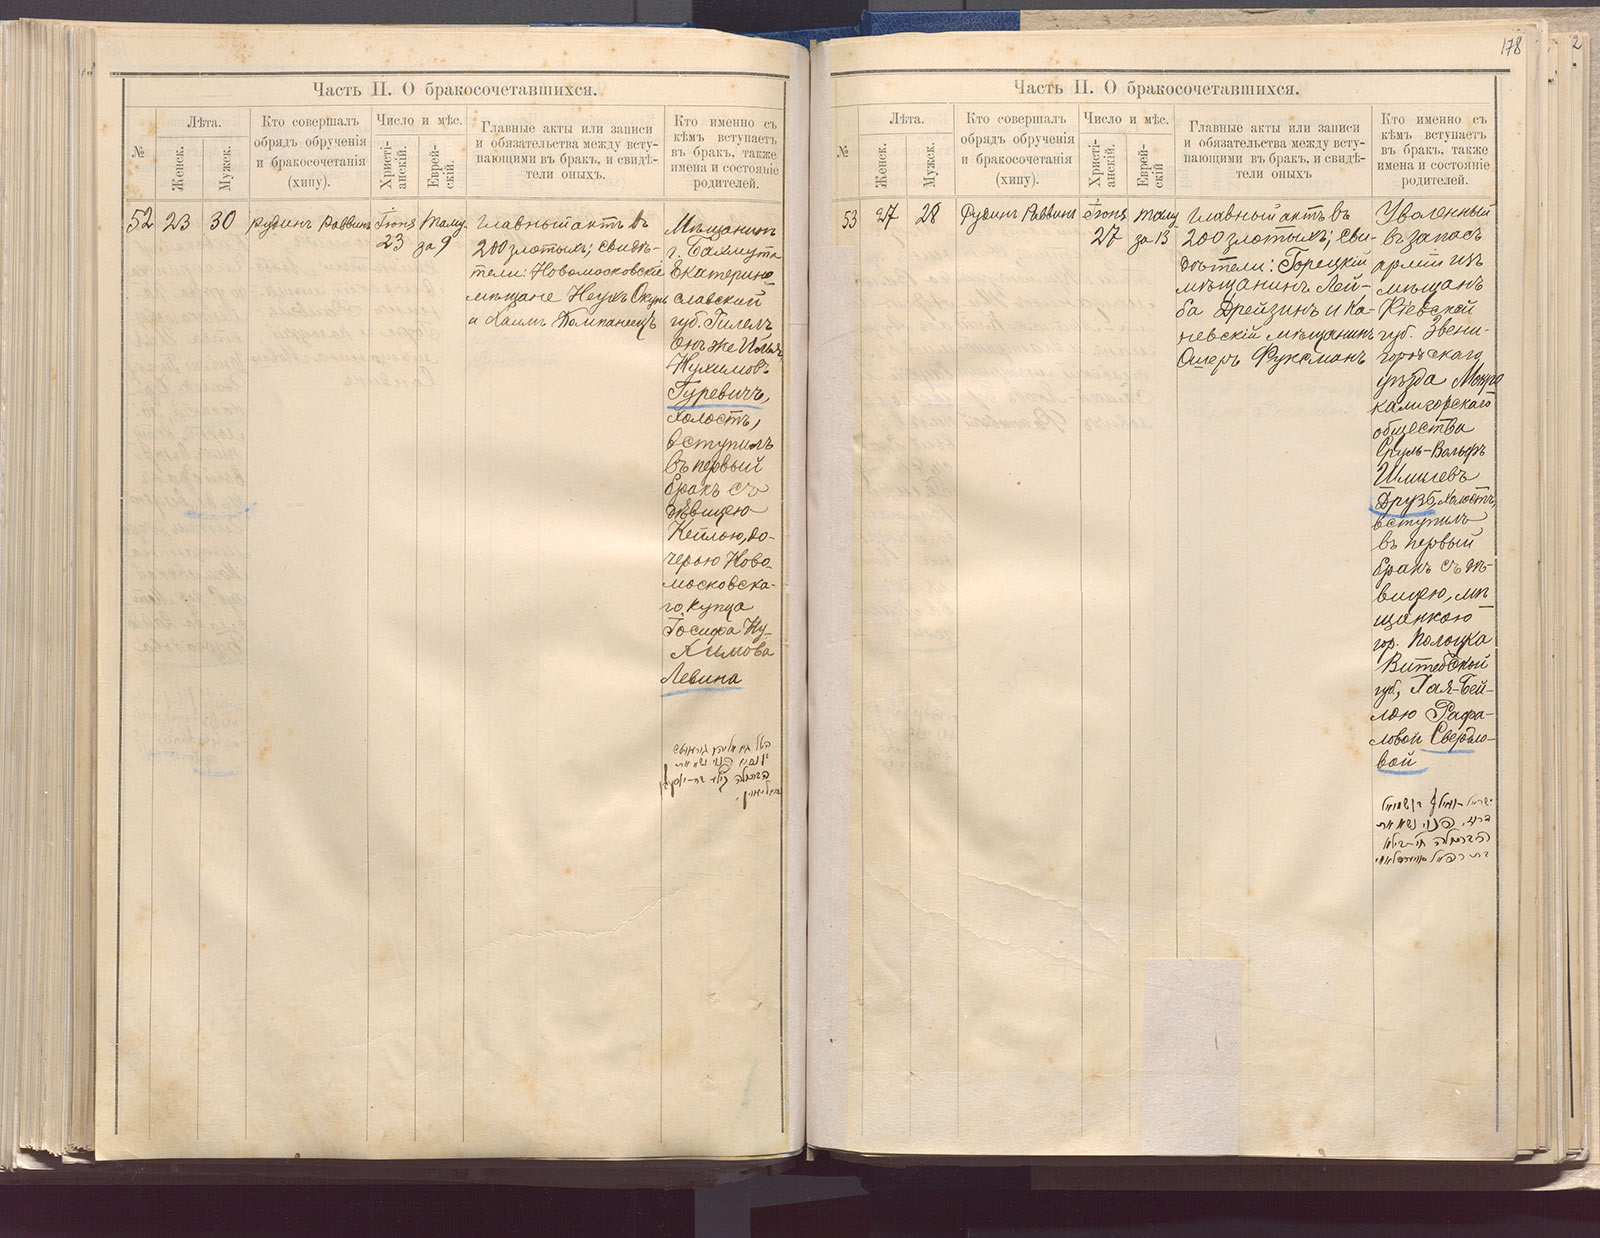 178
2
Часть II. О бракосочетавшихся.
№
Лѣта.
Женск.
Мужск.
Кто совершалъ
обрядъ обрученія
и бракосочетанія
(хипу).
Число и мѣс.
Христі-
анскій.
Еврей-
скій.
Главные акты или записи
и обязательства между всту-
пающими въ бракъ, и свидѣ-
тели оныхъ.
Кто именно съ
кѣмъ вступаетъ
въ бракъ, также
имена и состояніе
родителей.
52
23
30
Раввинъ
Іюня
23
Таму-
за 9
Главный актъ въ
200 злотыхъ; свидѣ-
тели: Новомосковскіе
мѣщане Неухъ Окунь
и Хаимъ Компанеецъ
Мѣщанинъ
г. Бахмута
Екатерино-
славской
губ. Гилель
онъ же Илья
Нухимовъ
Гуревичъ,
холостъ,
вступилъ
въ первый
бракъ съ
дѣвицею
Кейлою, до-
черью Ново-
московска-
го купца
Іосифа Ну-
химова
Левина
Часть II. О бракосочетавшихся.
№
Лѣта.
Женск.
Мужск.
Кто совершалъ
обрядъ обрученія
и бракосочетанія
(хипу).
Число и мѣс.
Христі-
анскій.
Еврей-
скій
Главные акты или записи
и обязательства между всту-
пающими въ бракъ, и свидѣ-
тели оныхъ
Кто именно съ
кѣмъ вступаетъ
въ бракъ, также
имена и состояніе
родителей.
53
27
28
Раввинъ
Іюня
27
Таму-
за 13
Главный актъ въ
200 злотыхъ; сви-
дѣтели: Горецкій
мѣщанинъ Лей-
ба Дрейзинъ и Ка-
невскій мѣщанинъ
Ошеръ Фуксманъ
Уволенный
въ запасъ
арміи изъ
мѣщанъ
Кіевской
губ. Звени-
городскаго
уѣзда Мокро
калигорскаго
общества
Сруль-Вольфъ
Шмилевъ
Друзъ, холостъ,
вступилъ
въ первый
бракъ съ дѣ-
вицею, мѣ-
щанкою
гор. Полоцка
Витебской
губ. Хая-Бей-
лою Рафа-
ловой Свердло-
вой